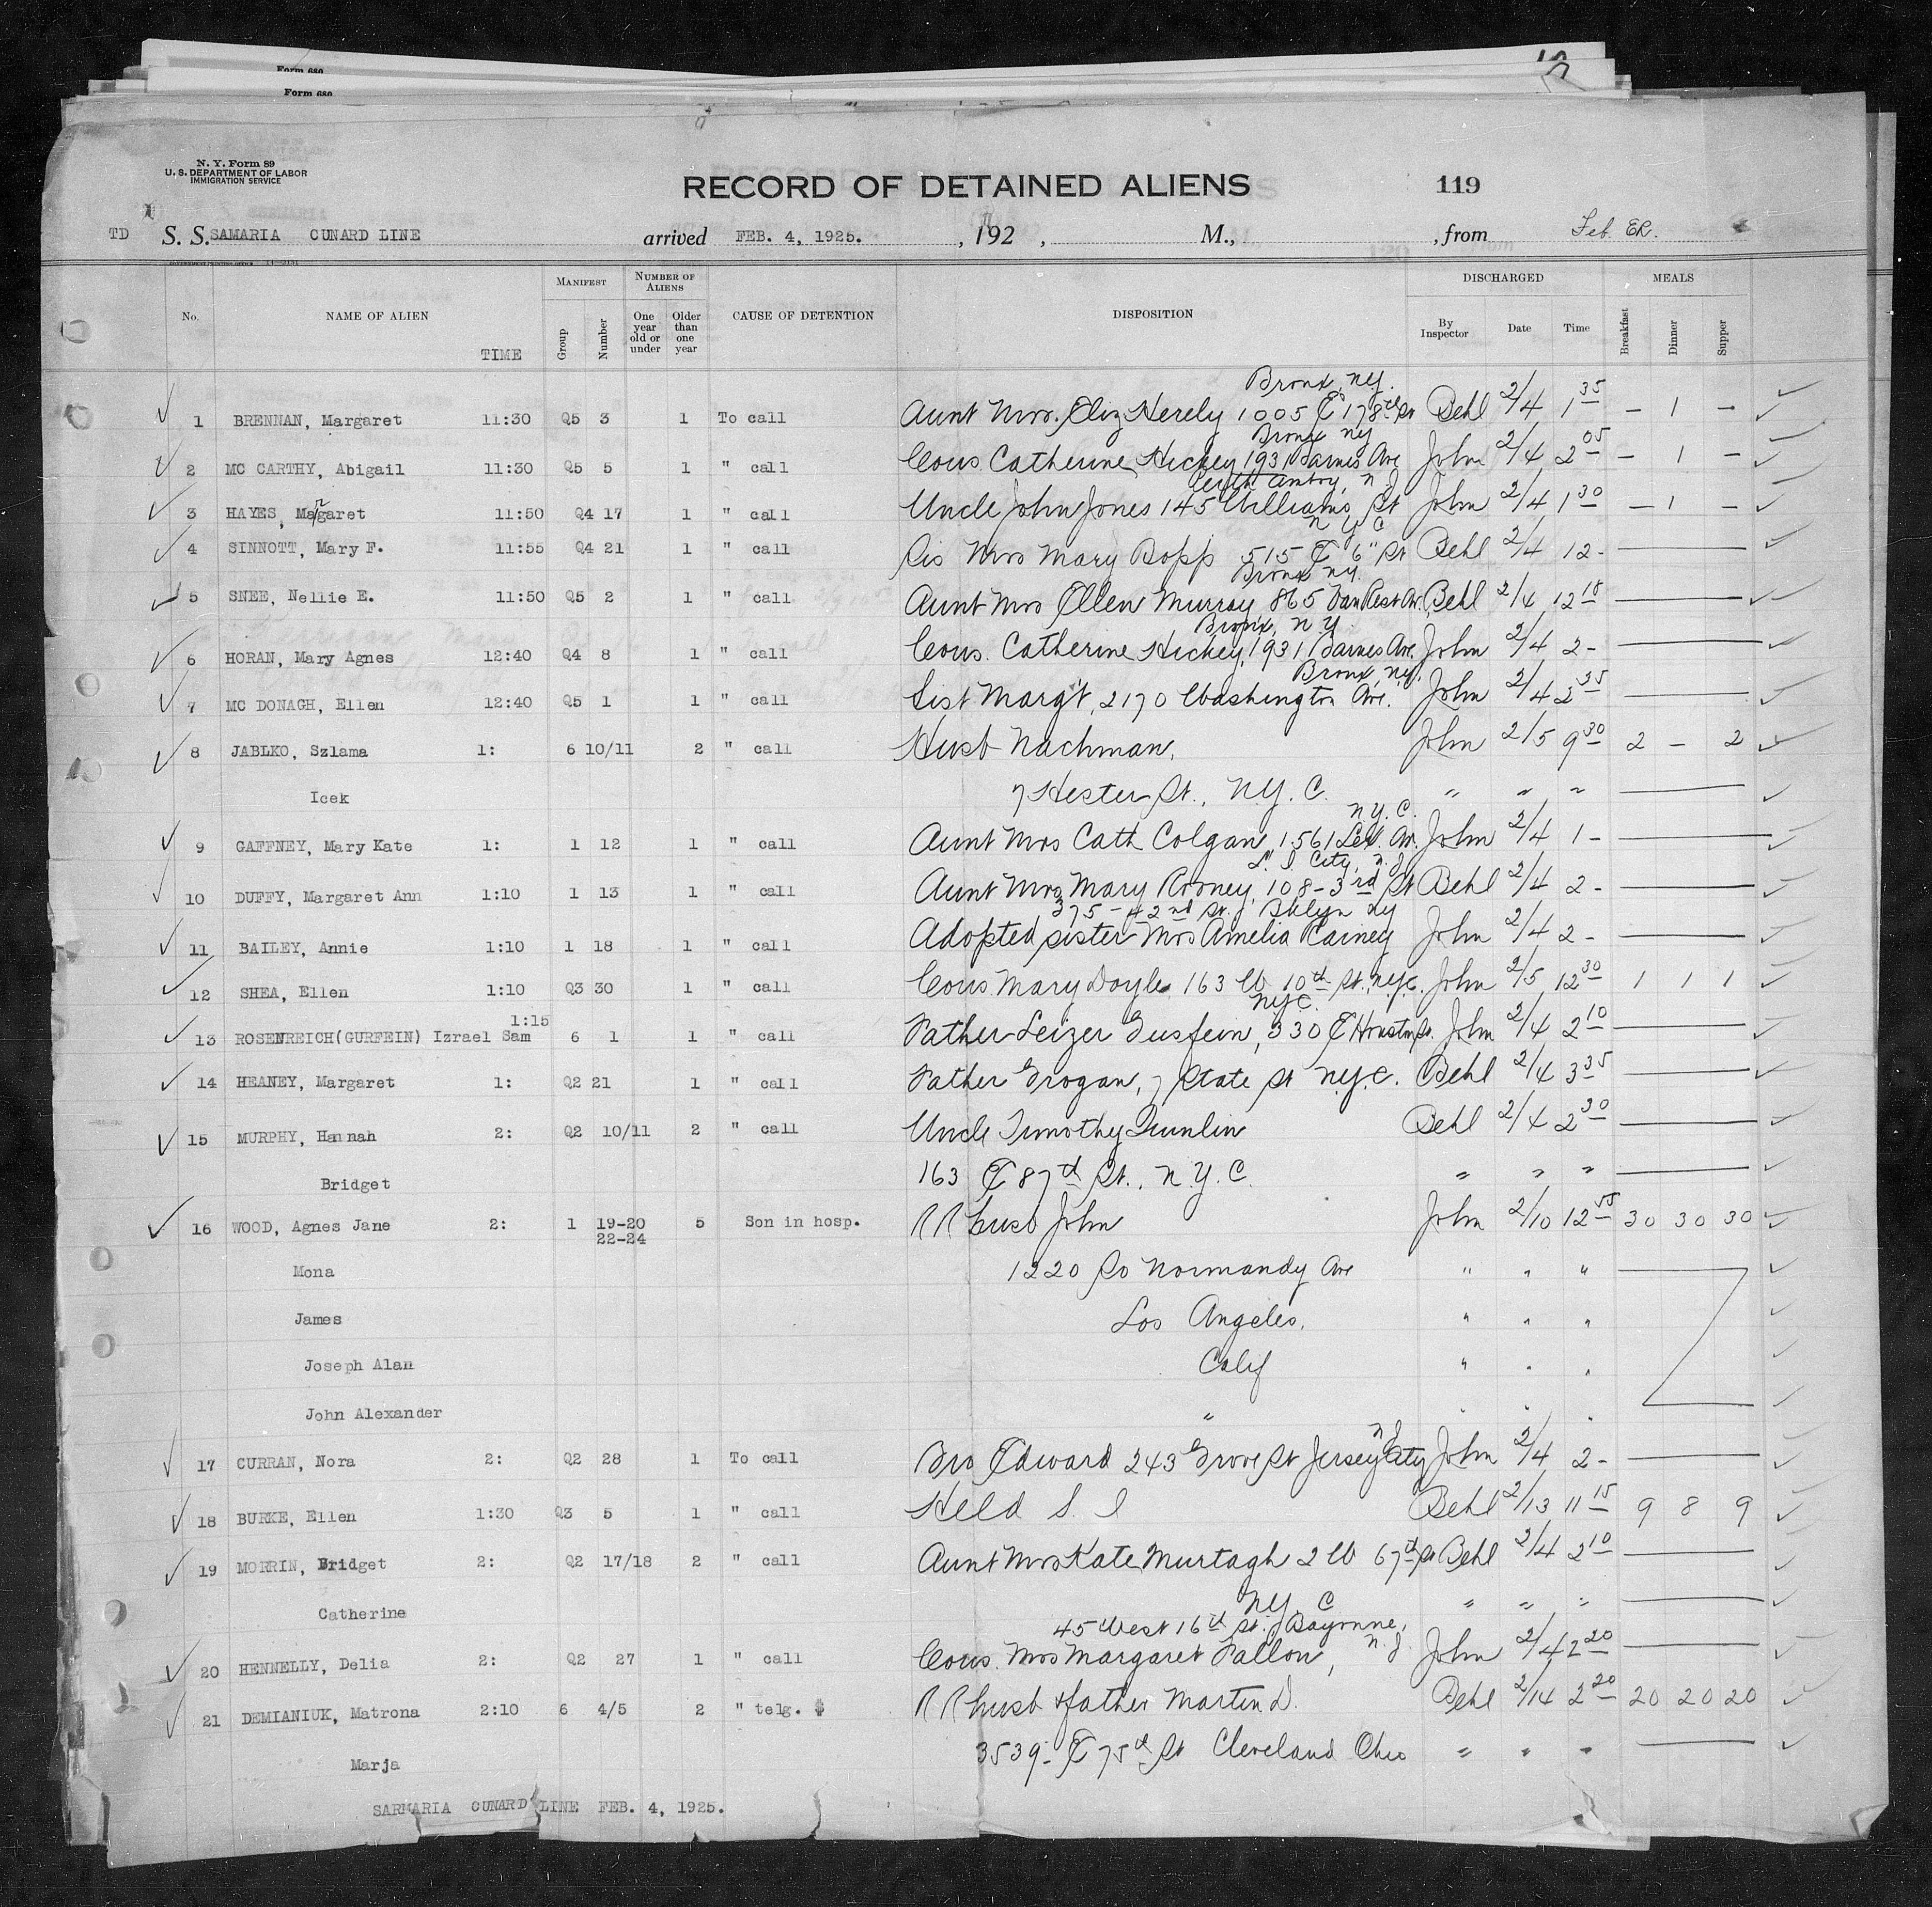 Form 680
Form 680
N. Y. Form 89
U. S. DEPARTMENT OF LABOR
IMMIGRATION SERVICE
RECORD OF DETAINED ALIENS
119
TD S. S. SAMARIA CUNARD LINE arrived FEB. 4, 1925. , 192 , M., , from Feb. ER.
No. NAME OF ALIEN TIME MANIFEST Group Number NUMBER OF ALIENS One year old or under Older than one year CAUSE OF DETENTION DISPOSITION DISCHARGED By Inspector Date Time MEALS Breakfast Dinner Supper
Bronx, N.Y.
1 BRENNAN, Margaret 11:30 Q5 3 1 To call Aunt Mrs. Eliz Herely 1005 E 178th St Behl 2/4 1 35 – 1 –
Bronx NY
2 MC CARTHY, Abigail 11:30 Q5 5 1 " call Cous. Catherine Hickey 1931 Barnes Ave John 2/4 2 05 – 1 –
Perth Amboy, N J
3 HAYES, Margaret 11:50 Q4 17 1 " call Uncle John Jones 145 Williams St John 2/4 1 30 – 1 –
N Y C
4 SINNOTT, Mary F. 11:55 Q4 21 1 " call Sis Mrs Mary Bopp 515 E 6" St Behl 2/4 12 -
Bronx NY.
5 SNEE, Nellie E. 11:50 Q5 2 1 " call Aunt Mrs Ellen Murray 865 Van Nest Av. Behl 2/4 12 15
Bronx, N.Y.
6 HORAN, Mary Agnes 12:40 Q4 8 1 " call Cous. Catherine Hickey, 1931 Barnes Ave. John 2/4 2 -
Bronx, NY.
7 MC DONAGH, Ellen 12:40 Q5 1 1 " call Sist Marg't, 2170 Washington Ave. John 2/4 2 35
8 JABLKO, Szlama 1: 6 10/11 2 " call Husb Nachman, John 2/5 9 30 2 – 2
Icek 7 Hester St., N.Y.C. " " "
N.Y.C.
9 GAFFNEY, Mary Kate 1: 1 12 1 " call Aunt Mrs Cath Colgan, 1561 Lex. Av. John 2/4 1 -
L. I. City,
10 DUFFY, Margaret Ann 1:10 1 13 1 " call Aunt Mrs Mary Rooney, 108-3rd St Behl 2/4 2 -
375 - 42nd St. Bklyn NY
11 BAILEY, Annie 1:10 1 18 1 " call Adopted sister Mrs Amelia Rainey John 2/4 2 -
12 SHEA, Ellen 1:10 Q3 30 1 " call Cous Mary Doyle 163 W 10th St. NYC. John 2/5 12 30 1 1 1
NYC.
1:15
13 ROSENREICH(GURFEIN) Izrael Sam 6 1 1 " call Father Leizer Gusfein, 330 E Houston St. John 2/4 2 10
14 HEANEY, Margaret 1: Q2 21 1 " call Father Grogan, 7 State St N.Y.C. Behl 2/4 3 35
15 MURPHY, Hannah 2: Q2 10/11 2 " call Uncle Timothy Quinlin Behl 2/4 2 30
Bridget 163 E 87th St., N.Y.C. " " "
16 WOOD, Agnes Jane 2: 1 19-20 22-24 5 Son in hosp. RR husb John John 2/10 12 55 30 30 30
Mona 1220 So Normandy Ave " " "
James Los Angeles, " " "
Joseph Alan Calif " " "
John Alexander " " " "
N J
17 CURRAN, Nora 2: Q2 28 1 To call Bro Edward 243 Grove St Jersey City John 2/4 2 -
18 BURKE, Ellen 1:30 Q3 5 1 " call Held S. I Behl 2/13 11 15 9 8 9
19 MORRIN, Bridget 2: Q2 17/18 2 " call Aunt Mrs Kate Murtagh 2 W 67th St Behl 2/4 2 10
Catherine N.Y. C " " "
45 West 16th St. Bayonne,
20 HENNELLY, Delia 2: Q2 27 1 " call Cous. Mrs Margaret Fallon, N. J. John 2/4 2 20
21 DEMIANIUK, Matrona 2:10 6 4/5 2 " telg. $ RR husb & father Martin D. Behl 2/14 2 20 20 20 20
Marja 3539 - E 75th St Cleveland Ohio " " "
SARMARIA CUNARD LINE FEB. 4, 1925.